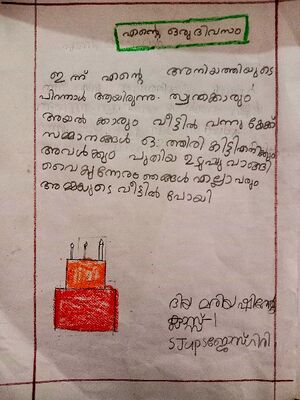 എന്റെ ഒരു ദിവസം
ഇന്ന് എന്റെ അനിയത്തിയുടെ
പിറന്നാൾ ആയിരുന്നു. സ്വന്തക്കാരും
അയൽക്കാരും വീട്ടിൽ വന്നു കേക്ക്
സമ്മാനങ്ങൾ ഒത്തിരി കിട്ടി എനിക്കും
അവൾക്കും പുതിയ ഉടുപ്പു വാങ്ങി
വൈകുന്നേരം ഞങ്ങൾ എല്ലാവരും
അമ്മയുടെ വീട്ടിൽ പോയി
ദിയ മരിയ ഷിന്റോ
ക്ലാസ്സ്-1
SJups ജോസ്ഗിരി